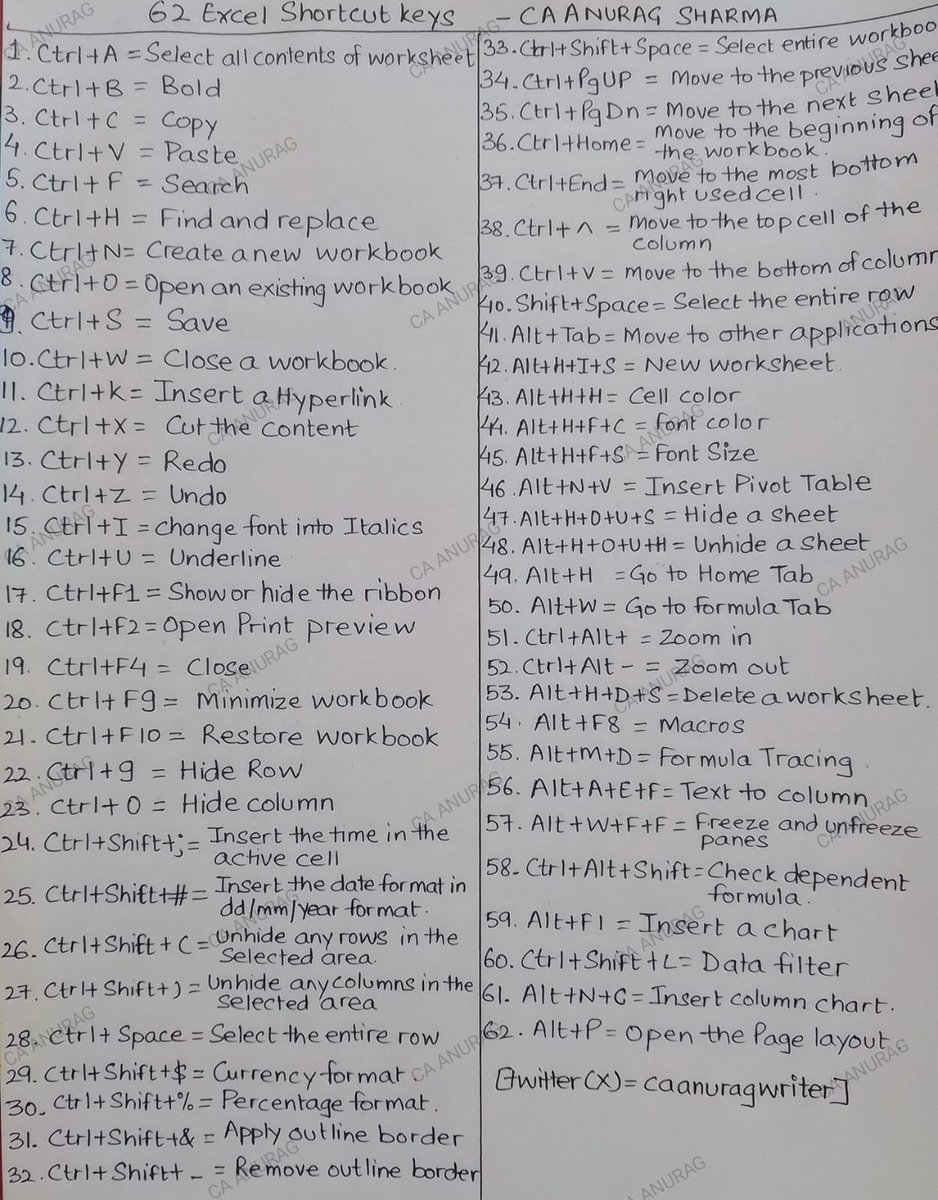 62 Excel Shortcut keys - CA ANURAG SHARMA
1. Ctrl+A = Select all contents of worksheet
2. Ctrl+B = Bold
3. Ctrl+C = Copy
4. Ctrl+V = Paste
5. Ctrl+F = Search
6. Ctrl+H = Find and replace
7. Ctrl+N= Create a new workbook
8. Ctrl+O = Open an existing workbook
9. Ctrl+S = Save
10. Ctrl+W = Close a workbook.
11. Ctrl+K = Insert a Hyperlink
12. Ctrl+X = Cut the content
13. Ctrl+Y = Redo
14. Ctrl+Z = Undo
15. Ctrl+I = change font into Italics
16. Ctrl+U = Underline
17. Ctrl+F1 = Show or hide the ribbon
18. Ctrl+F2 = Open Print preview
19. Ctrl+F4 = Close
20. Ctrl+F9 = Minimize workbook
21. Ctrl+F10 = Restore workbook
22. Ctrl+9 = Hide Row
23. Ctrl+0 = Hide column
24. Ctrl+Shift+;= Insert the time in the
active cell
25. Ctrl+Shift+#= Insert the date format in
dd/mm/year format.
26. Ctrl+Shift+C = Unhide any rows in the
Selected area.
27. Ctrl+Shift+) = Unhide any columns in the
selected area
28. Ctrl+Space = Select the entire row
29. Ctrl+Shift+$ = Currency format.
30. Ctrl+Shift+% = Percentage format.
31. Ctrl+Shift+& = Apply outline border
32. Ctrl+Shift+_ = Remove outline border
33. Ctrl+Shift+Space = Select entire workboo
34. Ctrl+PgUP = Move to the previous shee
35. Ctrl+PgDn = Move to the next sheet
36. Ctrl+Home = Move to the beginning of
the workbook.
37. Ctrl+End = Move to the most bottom
right used cell.
38. Ctrl+^ = Move to the top cell of the
column
39. Ctrl+v = Move to the bottom of column
40. Shift+Space = Select the entire row
41. Alt+Tab = Move to other applications
42. Alt+H+I+S = New worksheet.
43. Alt+H+H = Cell color
44. Alt+H+F+C = font color
45. Alt+H+F+S = Font Size
46. Alt+N+V = Insert Pivot Table
47. Alt+H+O+U+S = Hide a sheet
48. Alt+H+O+U+H = Unhide a sheet
49. Alt+H = Go to Home Tab
50. Alt+W = Go to formula Tab
51. Ctrl+Alt+ = Zoom in
52. Ctrl+Alt - = Zoom out
53. Alt+H+D+S = Delete a worksheet.
54. Alt+F8 = Macros
55. Alt+M+D = Formula Tracing
56. Alt+A+E+F = Text to column
57. Alt+W+F+F = Freeze and unfreeze
panes
58. Ctrl+Alt+Shift = Check dependent
formula.
59. Alt+F1 = Insert a chart
60. Ctrl+Shift+L = Data filter
61. Alt+N+C = Insert column chart.
62. Alt+P = Open the Page layout.
[Twitter(X) = caanuragwriter]